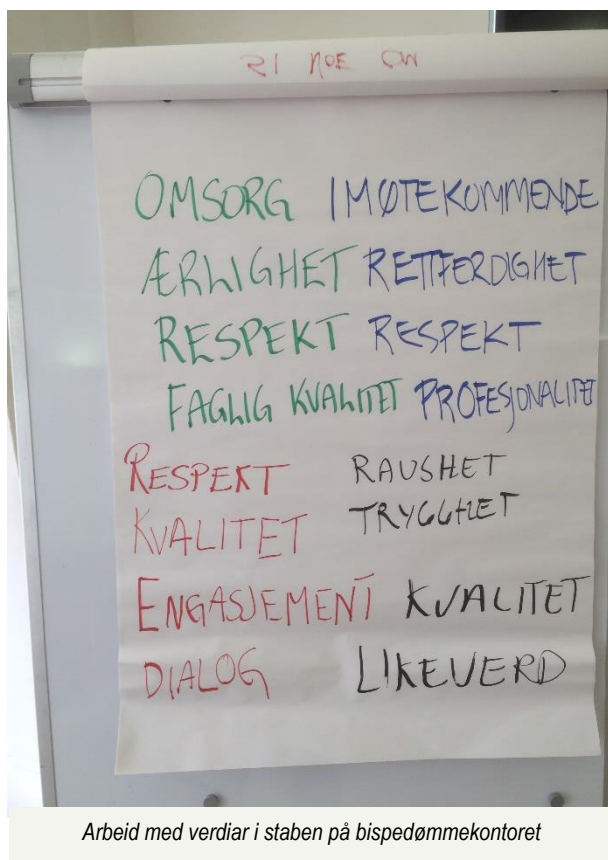 SI NOE OM
OMSORG IMØTEKOMMENDE
ÆRLIGHET RETTFERDIGHET
RESPEKT RESPEKT
FAGLIG KVALITET PROFESJONALITET
RESPEKT RAUSHET
KVALITET TRYGGHET
ENGASJEMENT KVALITET
DIALOG LIKEVERD
Arbeid med verdiar i staben på bispedømmekontoret